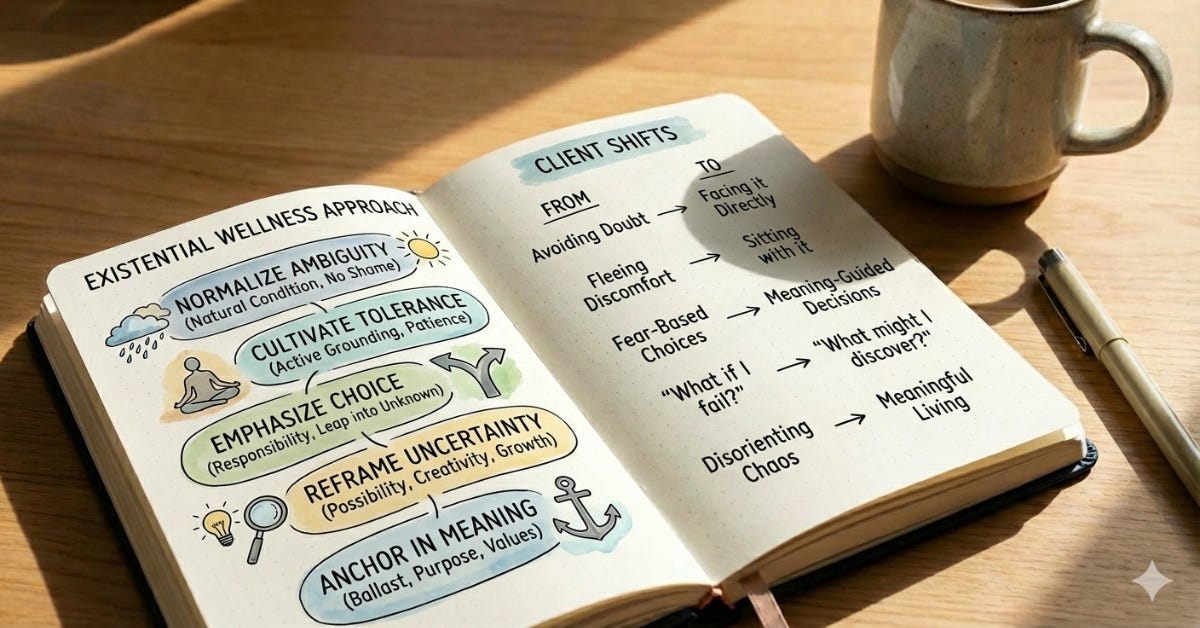 EXISTENTIAL WELLNESS APPROACH
NORMALIZE AMBIGUITY
(Natural Condition, No Shame)
CULTIVATE TOLERANCE
(Active Grounding, Patience)
EMPHASIZE CHOICE
(Responsibility, Leap into Unknown)
REFRAME UNCERTAINTY
(Possibility, Creativity, Growth)
ANCHOR IN MEANING
(Ballast, Purpose, Values)
CLIENT SHIFTS
FROM
TO
Avoiding Doubt →
Facing it
Directly
Fleeing
Discomfort →
Sitting
with it
Fear-Based
Choices →
Meaning-Guided
Decisions
"What if I
fail?" →
"What might I
discover?"
Disorienting
Chaos →
Meaningful
Living